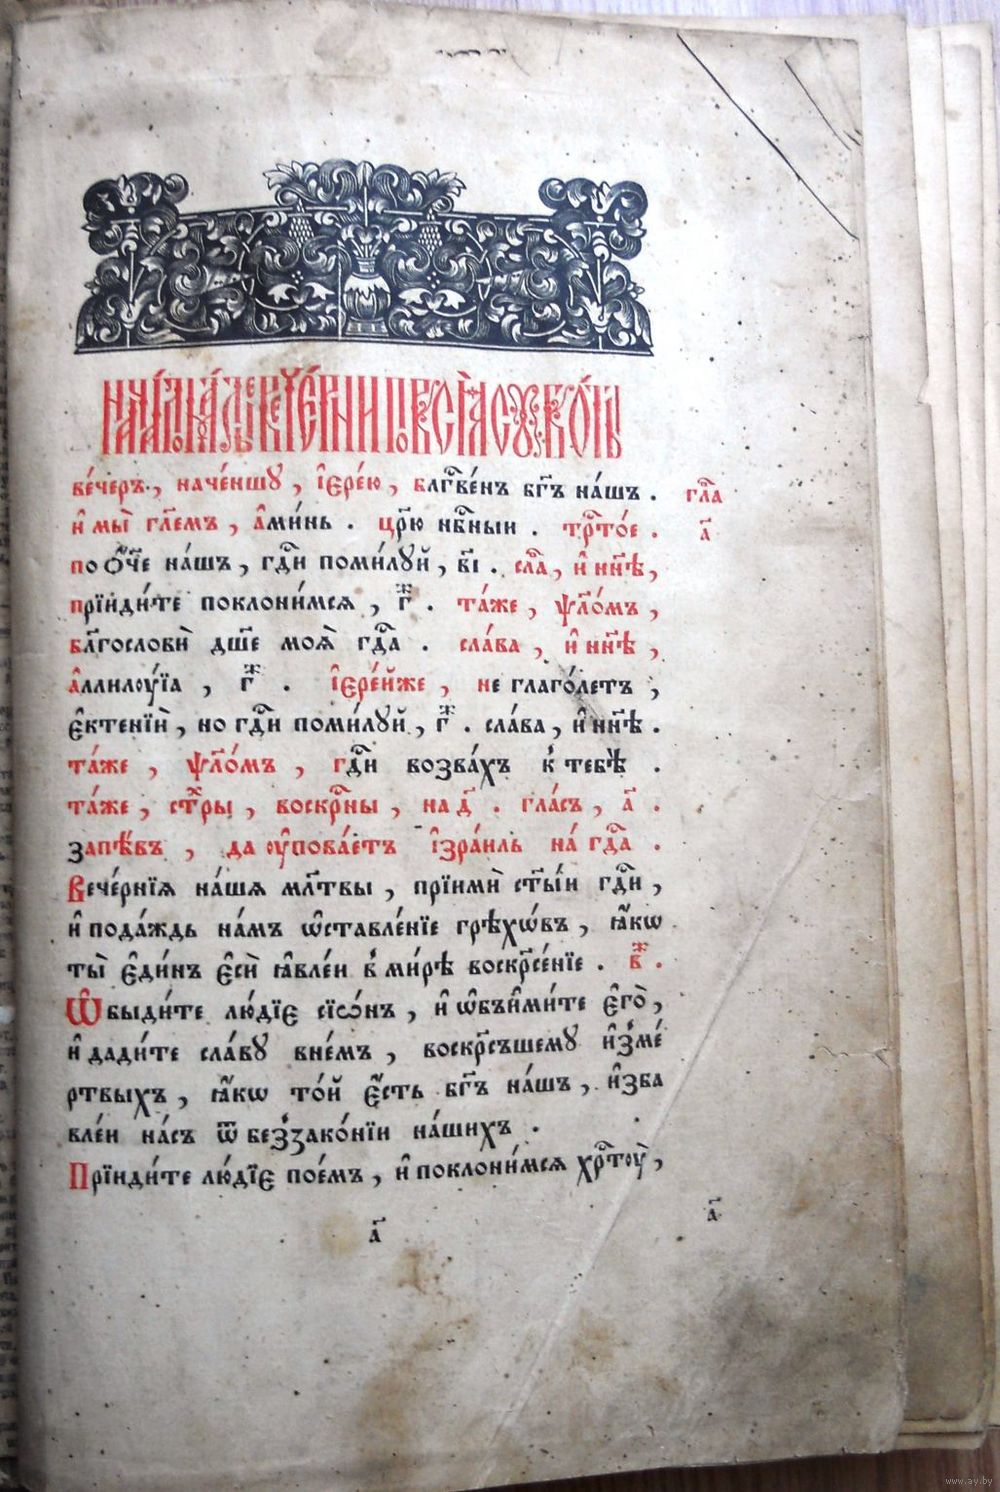 вече́ръ., наче́ншу, і҆ере́ю, блг҇ве́нъ бг҃ъ на́шъ. гла҇
и҆ мы̀ гл҃емъ, а҆ми́нь. цр҃ю нб҇ныи. тр҇то́е. а҃
по ѻ҆́ч҃е на́шъ, гд҇и поми́луй, в҃і. сла҇, и҆ нн҃ѣ,
прїиди́те поклони́мся, г҃ ж. та́же, ѱл҃о́мъ,
бл҃гослови̑ дш҃е моя̀ гд҇а. сла́ва, и҆ нн҃ѣ,
а҆ллилоу́їа, г҃ ж. і҆ере́йже, не глаго́летъ,
є҆ктенїи̑, но гд҇и поми́луй, г҃ ж. сла́ва, и҆ нн҃ѣ.
та́же, ѱл҃о́мъ, гд҇и возва́хъ к̾ тебѣ̀.
та́же, ст҇ры, воскр҇ны, на д҃. гла́съ, а҃.
запѣ́въ, да оу҆пова́етъ і҆зра́иль на́ гд҇а.
Вече́рнїя на́шя мл҃твы, прїими̑ ст҃ы́и гд҇и,
и҆ пода́ждь на́мъ ѡ҆ставле́нїе грѣхѡ́въ, ꙗ҆́кѡ
ты̀ є҆ди́нъ є҆сѝ ꙗ҆вле́и в̾ ми́рѣ воскр҇се́нїе. в҃ ж.
Ѡ҆быди́те лю́дїе сїѡ́нъ, и҆ ѡ҆бъи҆ми́те є҆го̀,
и҆ дади́те сла́ву вне́мъ, воскр҇съшему и҆з̾ме́
ртвыхъ, ꙗ҆́кѡ то́й є҆́сть бг҃ъ на́шъ, и҆зба
вле́и на́съ ѿ без̾зако́нїи на́шихъ.
Прїиди́те лю́дїе пое́мъ, и҆ поклони́мся хр҇тоу̀,
а҃
а҃
www.ay.by